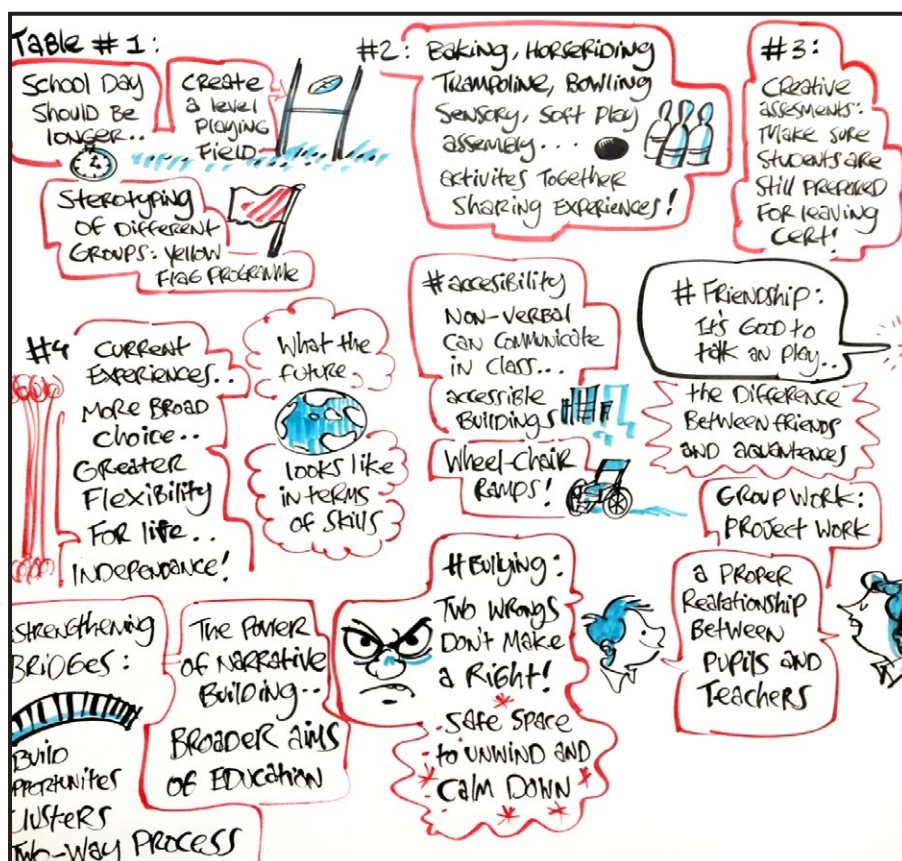 Table #1:
School Day
Should Be
longer..
Create
a level
Playing
Field
Sterotyping
of Different
Groups: Yellow
Flag Programme
#2: Baking, Horseriding
Trampoline, Bowling
Sensory, Soft Play
assembly....
activites Together
Sharing Experiences!
#3:
Creative
assesments:
Make sure
Students are
Still Prepared
For leaving
Cert!
#4 Current
Experiences..
More Broad
Choice..
Greater
Flexibility
For life..
Independance!
What the
future
looks like
in terms
of skills
#accesibility
Non-verbal
can communicate
in class...
accessible
Buildings
Wheel-Chair
Ramps!
# Friendship:
It's Good to
talk an play..
the Difference
Between friends
and aquentences
Group Work:
Project Work
a Proper
Realationship
Between
Pupils and
Teachers
#Bullying:
Two wrongs
Don't Make
a Right!
Safe Space
to unwind and
Calm Down
Strengthening
Bridges:
Build
pportunites
lusters
Two-Way Process
The Power
of Narrative
Building..
Broader aims
of Education